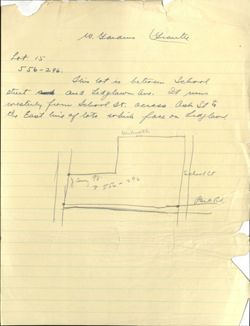 W. Gardens
Lot 15
556-296.
This lot is between School
street and Ledgelawn Ave. It runs
westerly from School St. across Ash St to
the East line of lots which face on Ledgelawn
School St
556-296
Park Rd